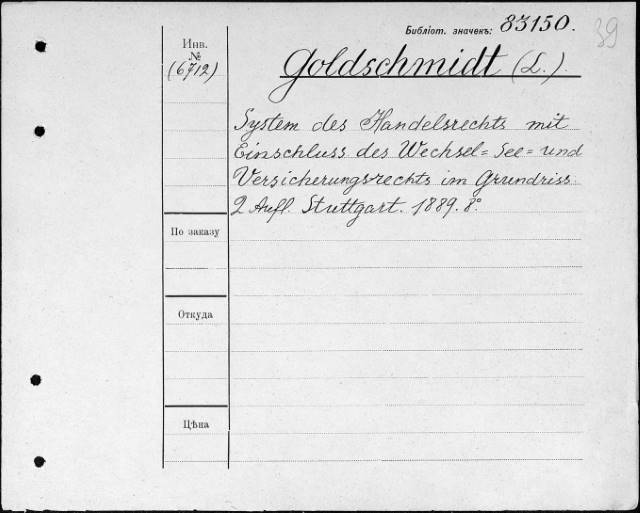 Библіот. значекъ: 83150.
39
Инв.
№
(6712)
Goldschmidt (L.).
System des Handelsrechts mit
Einschluss des Wechsel= See= und
Versicherungsrechts im Grundriss.
2 Aufl. Stuttgart. 1889. 8°
По заказу
Откуда
Цѣна